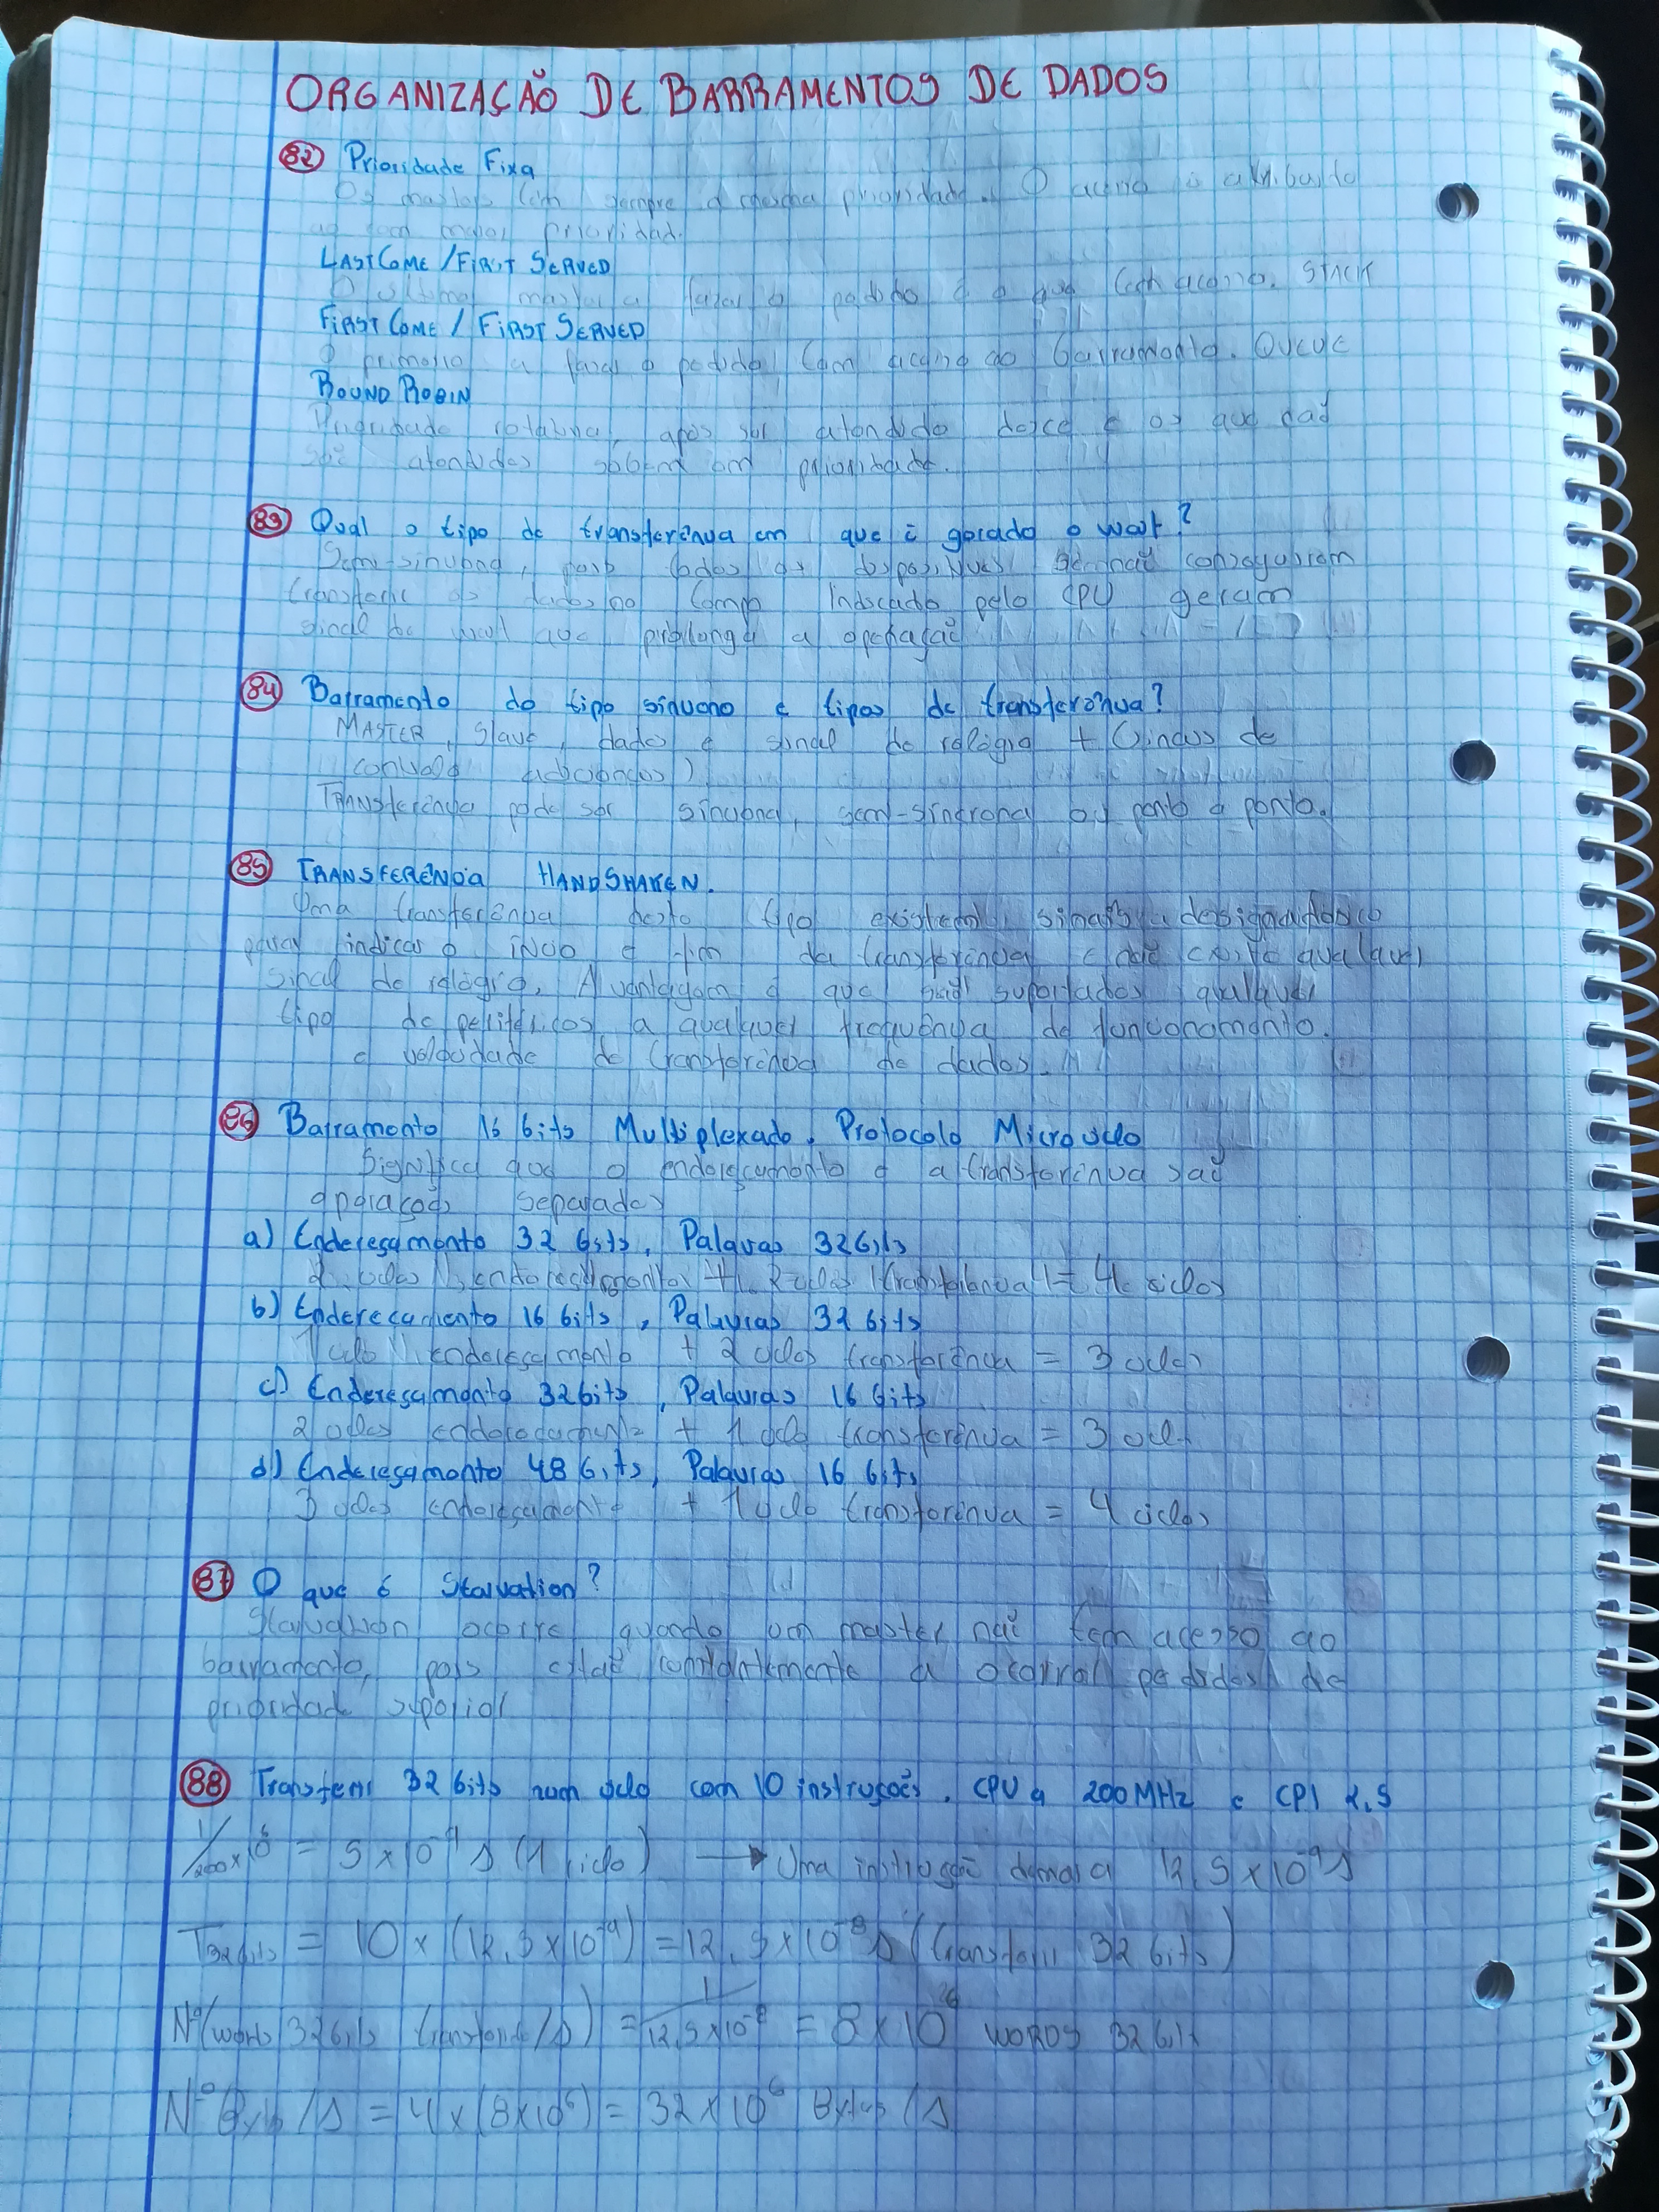 ORGANIZAÇÃO DE BARRAMENTOS DE DADOS
82 Prioridade Fixa
Os masters têm sempre a mesma prioridade. O acesso é atribuído
ao com maior prioridade.
LAST COME / FIRST SERVED
O último master a fazer o pedido é o que tem acesso. STACK
FIRST COME / FIRST SERVED
O primeiro a fazer o pedido tem acesso ao barramento. QUEUE
ROUND ROBIN
Prioridade rotativa, após ser atendido desce e os que não
são atendidos sobem em prioridade.
83 Qual o tipo de transferência em que é gerado o wait?
Semi-síncrona, pois todos os dispositivos que não conseguirem
transferir os dados no tempo indicado pelo CPU geram
sinal de wait que prolonga a operação
84 Barramento do tipo síncrono e tipos de transferência?
MASTER, Slave, dados e sinal de relógio + (sinais de
controlo adicionais)
Transferência pode ser síncrona, semi-síncrona ou ponto a ponto.
85 TRANSFERÊNCIA HANDSHAKEN.
Uma transferência deste tipo existem sinais designados
para indicar o início e fim da transferência e não existe qualquer
sinal de relógio. A vantagem é que são suportados qualquer
tipo de periféricos a qualquer frequência de funcionamento.
e velocidade de transferência de dados.
86 Barramento 16 bits Multiplexado, Protocolo Microciclo
Significa que o endereçamento e a transferência são
operações separadas
a) Endereçamento 32 bits, Palavras 32 bits
2 ciclos endereçamento + 2 ciclos transferência = 4 ciclos
b) Endereçamento 16 bits, Palavras 32 bits
1 ciclo endereçamento + 2 ciclos transferência = 3 ciclos
c) Endereçamento 32 bits, Palavras 16 bits
2 ciclos endereçamento + 1 ciclo transferência = 3 ciclos
d) Endereçamento 48 bits, Palavras 16 bits
3 ciclos endereçamento + 1 ciclo transferência = 4 ciclos
87 O que é Starvation?
Starvation ocorre quando um master não tem acesso ao
barramento, pois estão constantemente a ocorrer pedidos de
prioridade superior
88 Transferir 32 bits num ciclo com 10 instruções. CPU a 200MHz e CPI 2.5
1/200×10⁶ = 5×10⁻⁹ s (1 ciclo) → Uma instrução demora 12,5×10⁻⁹ s
T32bits = 10 × (12,5×10⁻⁹) = 12,5×10⁻⁸ s (transferir 32 bits)
Nº (words 32 bits transferidas/s) = 1/12,5×10⁻⁸ = 8×10⁶ WORDS 32 bits
Nº Bytes/s = 4×(8×10⁶) = 32×10⁶ Bytes/s